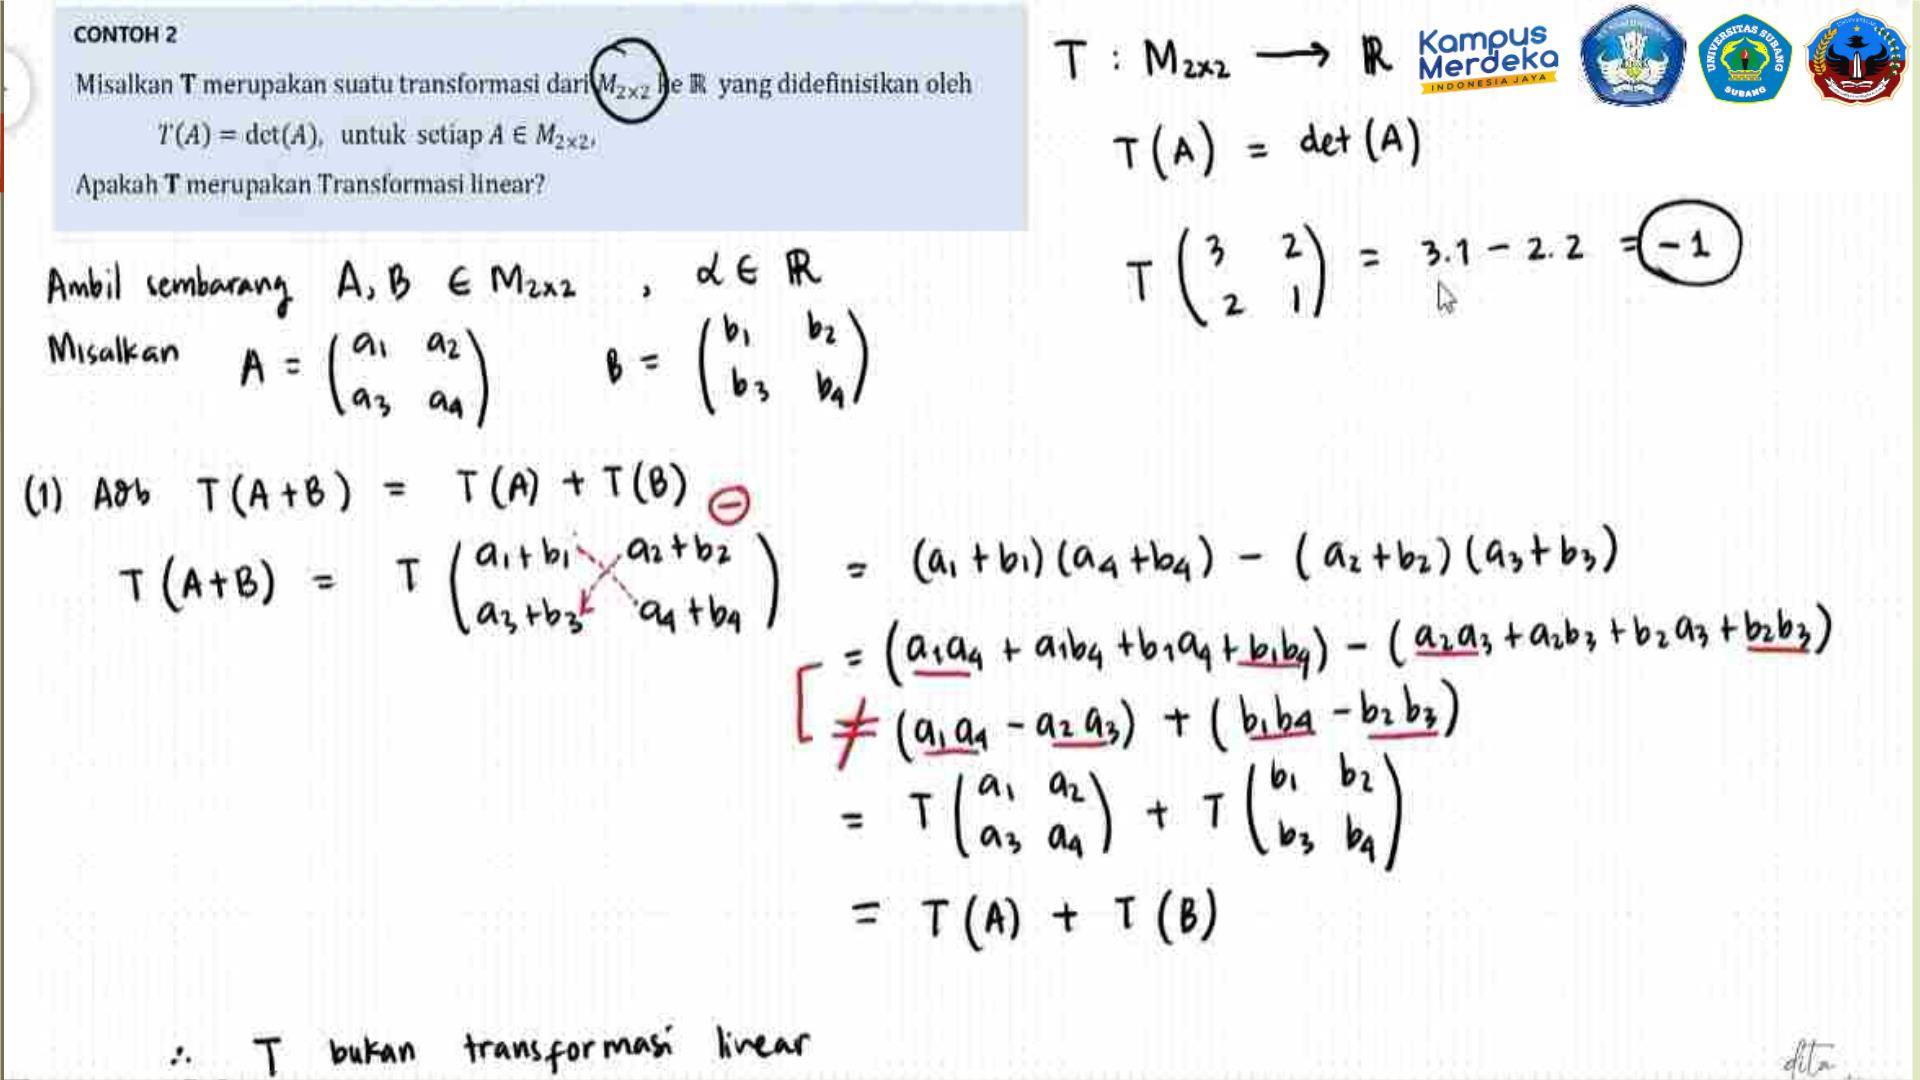 CONTOH 2
Misalkan T merupakan suatu transformasi dari M₂ₓ₂ ke ℝ yang didefinisikan oleh
T(A) = det(A), untuk setiap A ∈ M₂ₓ₂,
Apakah T merupakan Transformasi linear?
T : M₂ₓ₂ → ℝ
Kampus
Merdeka
INDONESIA JAYA
UNIVERSITAS SUBANG
SUBANG
T(A) = det(A)
T (3 2
2 1) = 3.1 - 2.2 = -1
Ambil sembarang A, B ∈ M₂ₓ₂ , α ∈ ℝ
Misalkan A = (a₁ a₂
a₃ a₄) B = (b₁ b₂
b₃ b₄)
(1) Adb T(A+B) = T(A) + T(B) ⊖
T(A+B) = T (a₁+b₁ a₂+b₂
a₃+b₃ a₄+b₄) = (a₁+b₁)(a₄+b₄) - (a₂+b₂)(a₃+b₃)
= (a₁a₄ + a₁b₄ + b₁a₄ + b₁b₄) - (a₂a₃ + a₂b₃ + b₂a₃ + b₂b₃)
≠ (a₁a₄ - a₂a₃) + (b₁b₄ - b₂b₃)
= T (a₁ a₂
a₃ a₄) + T (b₁ b₂
b₃ b₄)
= T(A) + T(B)
∴ T bukan transformasi linear
dita